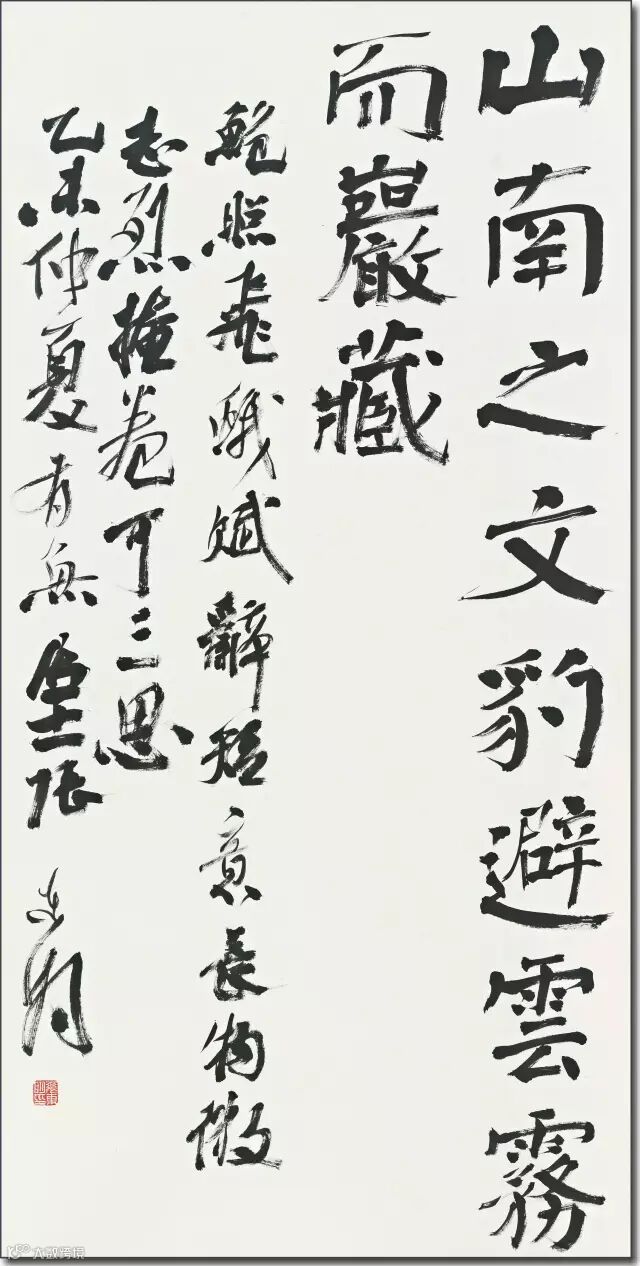 山南之文豹避雲霧
而巖藏
鮑照飛蛾賦辭短意長物微
志烈掩卷可三思
乙未仲夏有無堂張
大数跨境